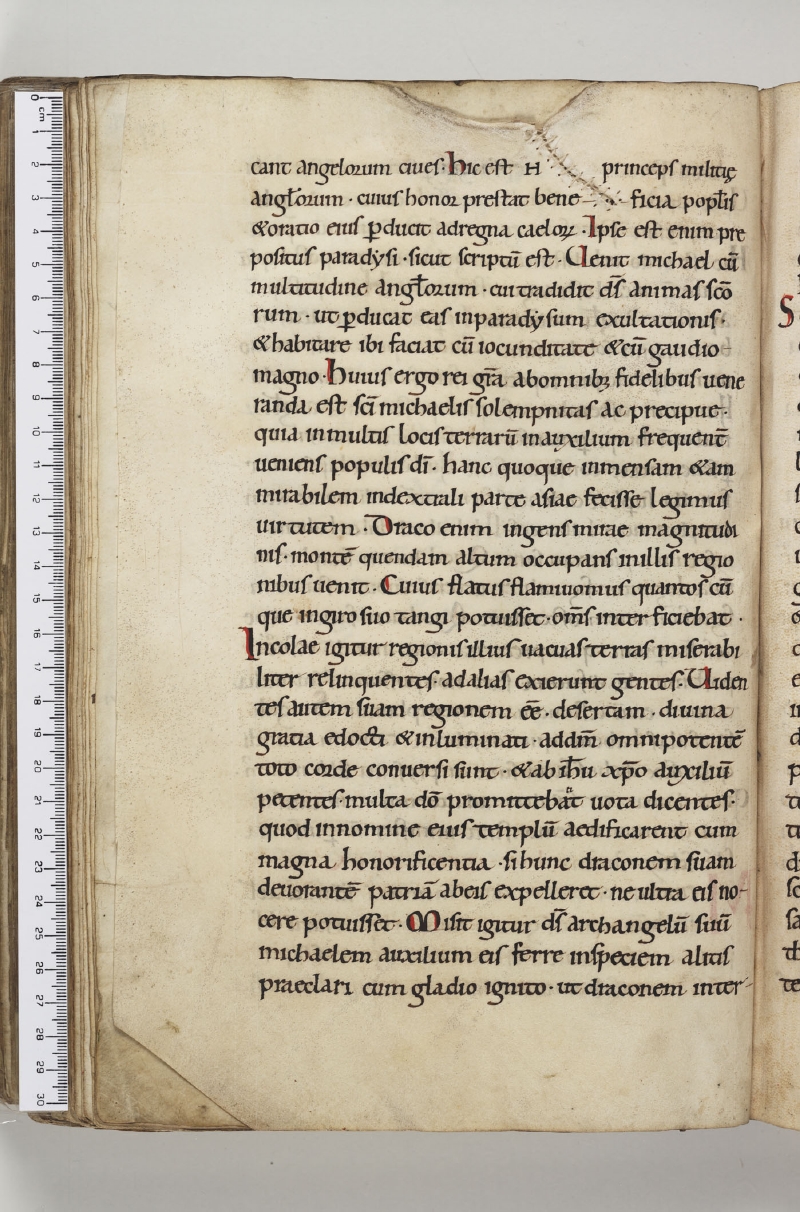 cant angelorum ciues. hic est H princeps militię
angłorum · cuius honor prestat bene ficia popłis
&oratio eius ꝑducit adregna caeloꝝ · Ipse est enim pre
positus paradysi · sicut scriptū est · Uenit michael cū
multitudine angłorum · cui tradidit ds̄ animas sc̄o
rum · ut ꝑducat eas inparadysum exultationis ·
&habitare ibi faciat cū iocunditate &cū gaudio
magno · huius ergo rei gr̄a abomnibꝫ fidelibus uene
randa est sc̄i michaelis solempnitas ac precipue ·
quia inmultis locis terrarū inauxilium frequent̄
ueniens populis dī · hanc quoque inmensam &am
mirabilem indextrali parte asiae fecisse legimus
uirtutem · Draco enim ingens mirae magnitudi
nis · montē quendam altum occupans inillis regio
nibus uenit · Cuius flatus flammiuomus quantos cū
que ingiro suo tangi potuisset · om̄s interficiebat ·
Incolae igitur regionis illius uacuas terras miserabi
liter relinquentes · ad alias exierunt gentes · Uiden
tes autem suam regionem ēē · desertam · diuina
gratia edocti &inluminati · addm̄ omnipotentē
toto corde conuersi sunt · &ab ih̄u xp̄o auxiliū
petentes · multa dō promittebāt uota dicentes ·
quod innomine eius templū aedificarent cum
magna honorificentia · si hunc draconem suam
deuorantē patriā abeis expelleret · ne ultra eis no-
cere potuisset · Misit igitur ds̄ archangelū suū
michaelem auxilium eis ferre inspeciem alitis
praeclari cum gladio ignito · ut draconem inter